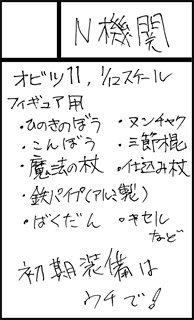 N機関
オビツ11，1/12スケール
フィギュア用
・ひのきのぼう
・こんぼう
・魔法の杖
・鉄パイプ(アルミ製)
・ばくだん
・ヌンチャク
・三節棍
・仕込み杖
・キセル
など
初期装備は
ウチで!